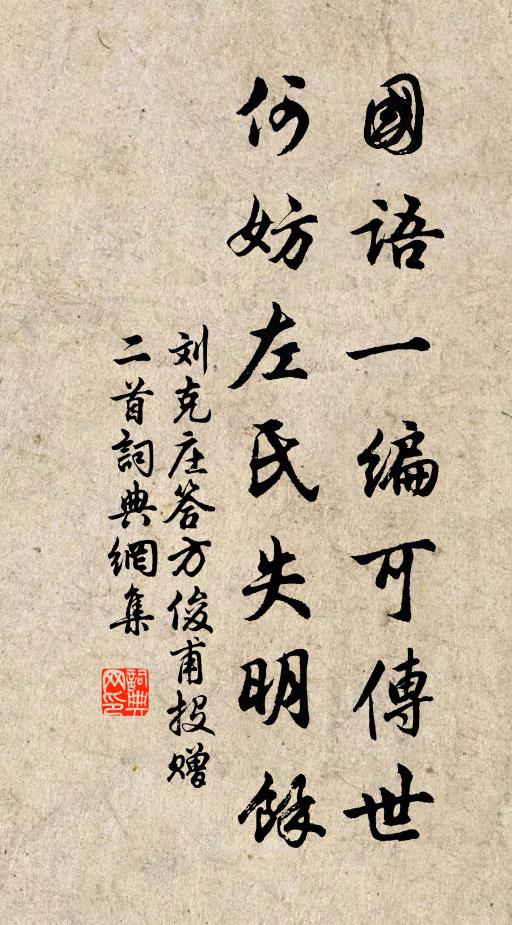 國語一編可傳世
何妨左氏失明餘
刘克庄答方俊甫投赠
二首詞典網集
詞典
网印